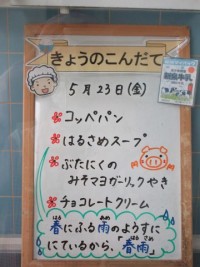 きょうのこんだて
5月23日(金)
コッペパン
はるさめスープ
ぶたにくの
みそマヨガーリックやき
チョコレートクリーム
春にふる雨のようすに
にているから、"春雨"